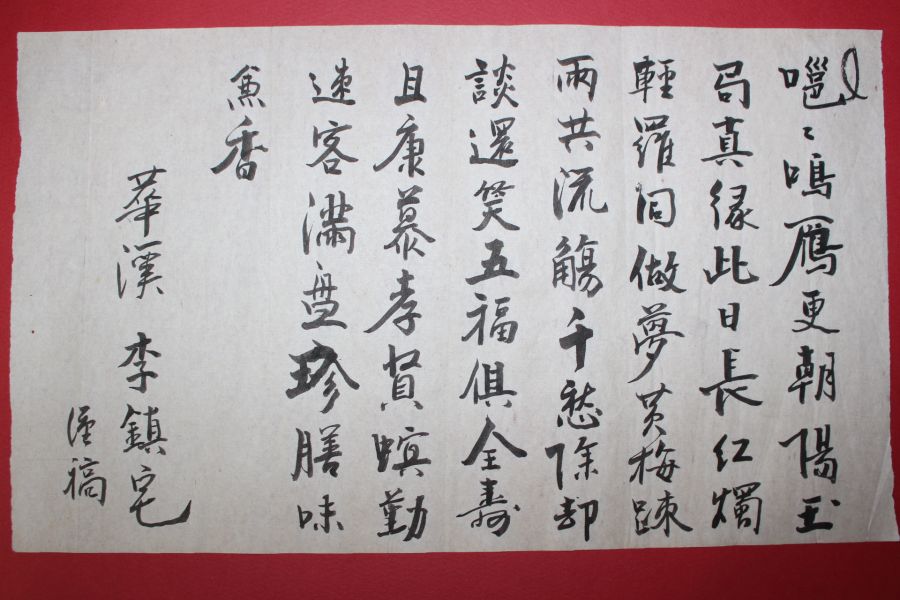 嗈〻鳴鴈更朝陽玉
局真緣此日長紅燭
輕羅同做夢黃梅踈
雨共流觴千愁除却
談還笑五福俱全壽
且康慕孝賢螟勤
速客滿盘珍膳味
兼香
華溪 李鎮宅
謹稿